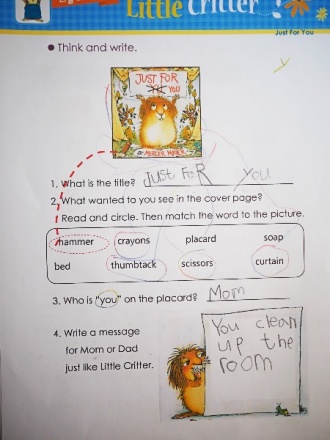 Little Critter
Just For You
Think and write.
JUST FOR
YOU
MERCER MAYER
1. What is the title? JUST FOR YOU
2. What wanted to you see in the cover page?
Read and circle. Then match the word to the picture.
hammer crayons placard soap
bed thumbtack scissors curtain
3. Who is "you" on the placard? Mom
4. Write a message
for Mom or Dad
just like Little Critter.
You clean
up the
room